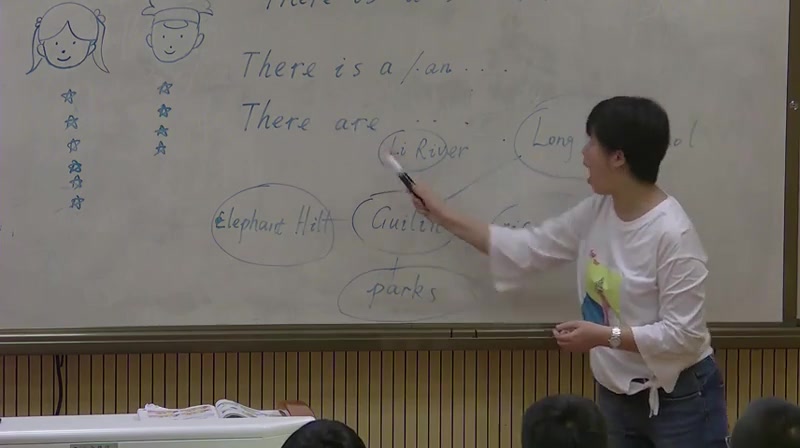 There is a
There is a / an ....
There are ...
Li River
Long
Elephant Hill
Guilin
parks